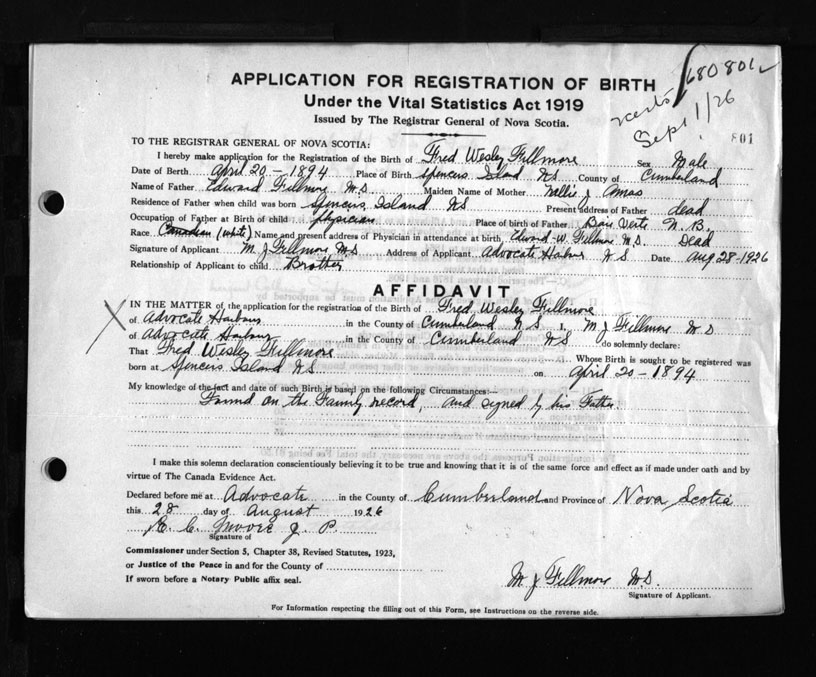 680801
APPLICATION FOR REGISTRATION OF BIRTH
Under the Vital Statistics Act 1919
Sept 1/26
Issued by The Registrar General of Nova Scotia.
801
TO THE REGISTRAR GENERAL OF NOVA SCOTIA:
I hereby make application for the Registration of the Birth of Fred Wesley Fillmore Sex Male
Date of Birth April 20 - 1894 Place of Birth Spencers Island NS County of Cumberland
Name of Father Edward Fillmore M.D Maiden Name of Mother Nellie J Amas
Residence of Father when child was born Spencers Island NS Present address of Father dead
Occupation of Father at Birth of child physician Place of birth of Father Baie Verte N.B.
Race Canadian (white) Name and present address of Physician in attendance at birth Edward W. Fillmore M.D. Dead
Signature of Applicant M J Fillmore M.D Address of Applicant Advocate Harbor N S Date Aug 28-1926
Relationship of Applicant to child Brother
AFFIDAVIT
IN THE MATTER of the application for the registration of the Birth of Fred Wesley Fillmore
of Advocate Harbour in the County of Cumberland N S I, M J Fillmore M D
of Advocate Harbour in the County of Cumberland NS do solemnly declare:
That Fred Wesley Fillmore Whose Birth is sought to be registered was
born at Spencers Island NS on April 20 - 1894
My knowledge of the fact and date of such Birth is based on the following Circumstances:—
Found on the Family record, and signed by his Father.
I make this solemn declaration conscientiously believing it to be true and knowing that it is of the same force and effect as if made under oath and by
virtue of The Canada Evidence Act.
Declared before me at Advocate in the County of Cumberland and Province of Nova Scotia
this 28 day of August 1926
E. C. Moore J. P.
Signature of
Commissioner under Section 5, Chapter 38, Revised Statutes, 1923,
or Justice of the Peace in and for the County of
If sworn before a Notary Public affix seal.
M J Fillmore M.D.
Signature of Applicant.
For Information respecting the filling out of this Form, see Instructions on the reverse side.